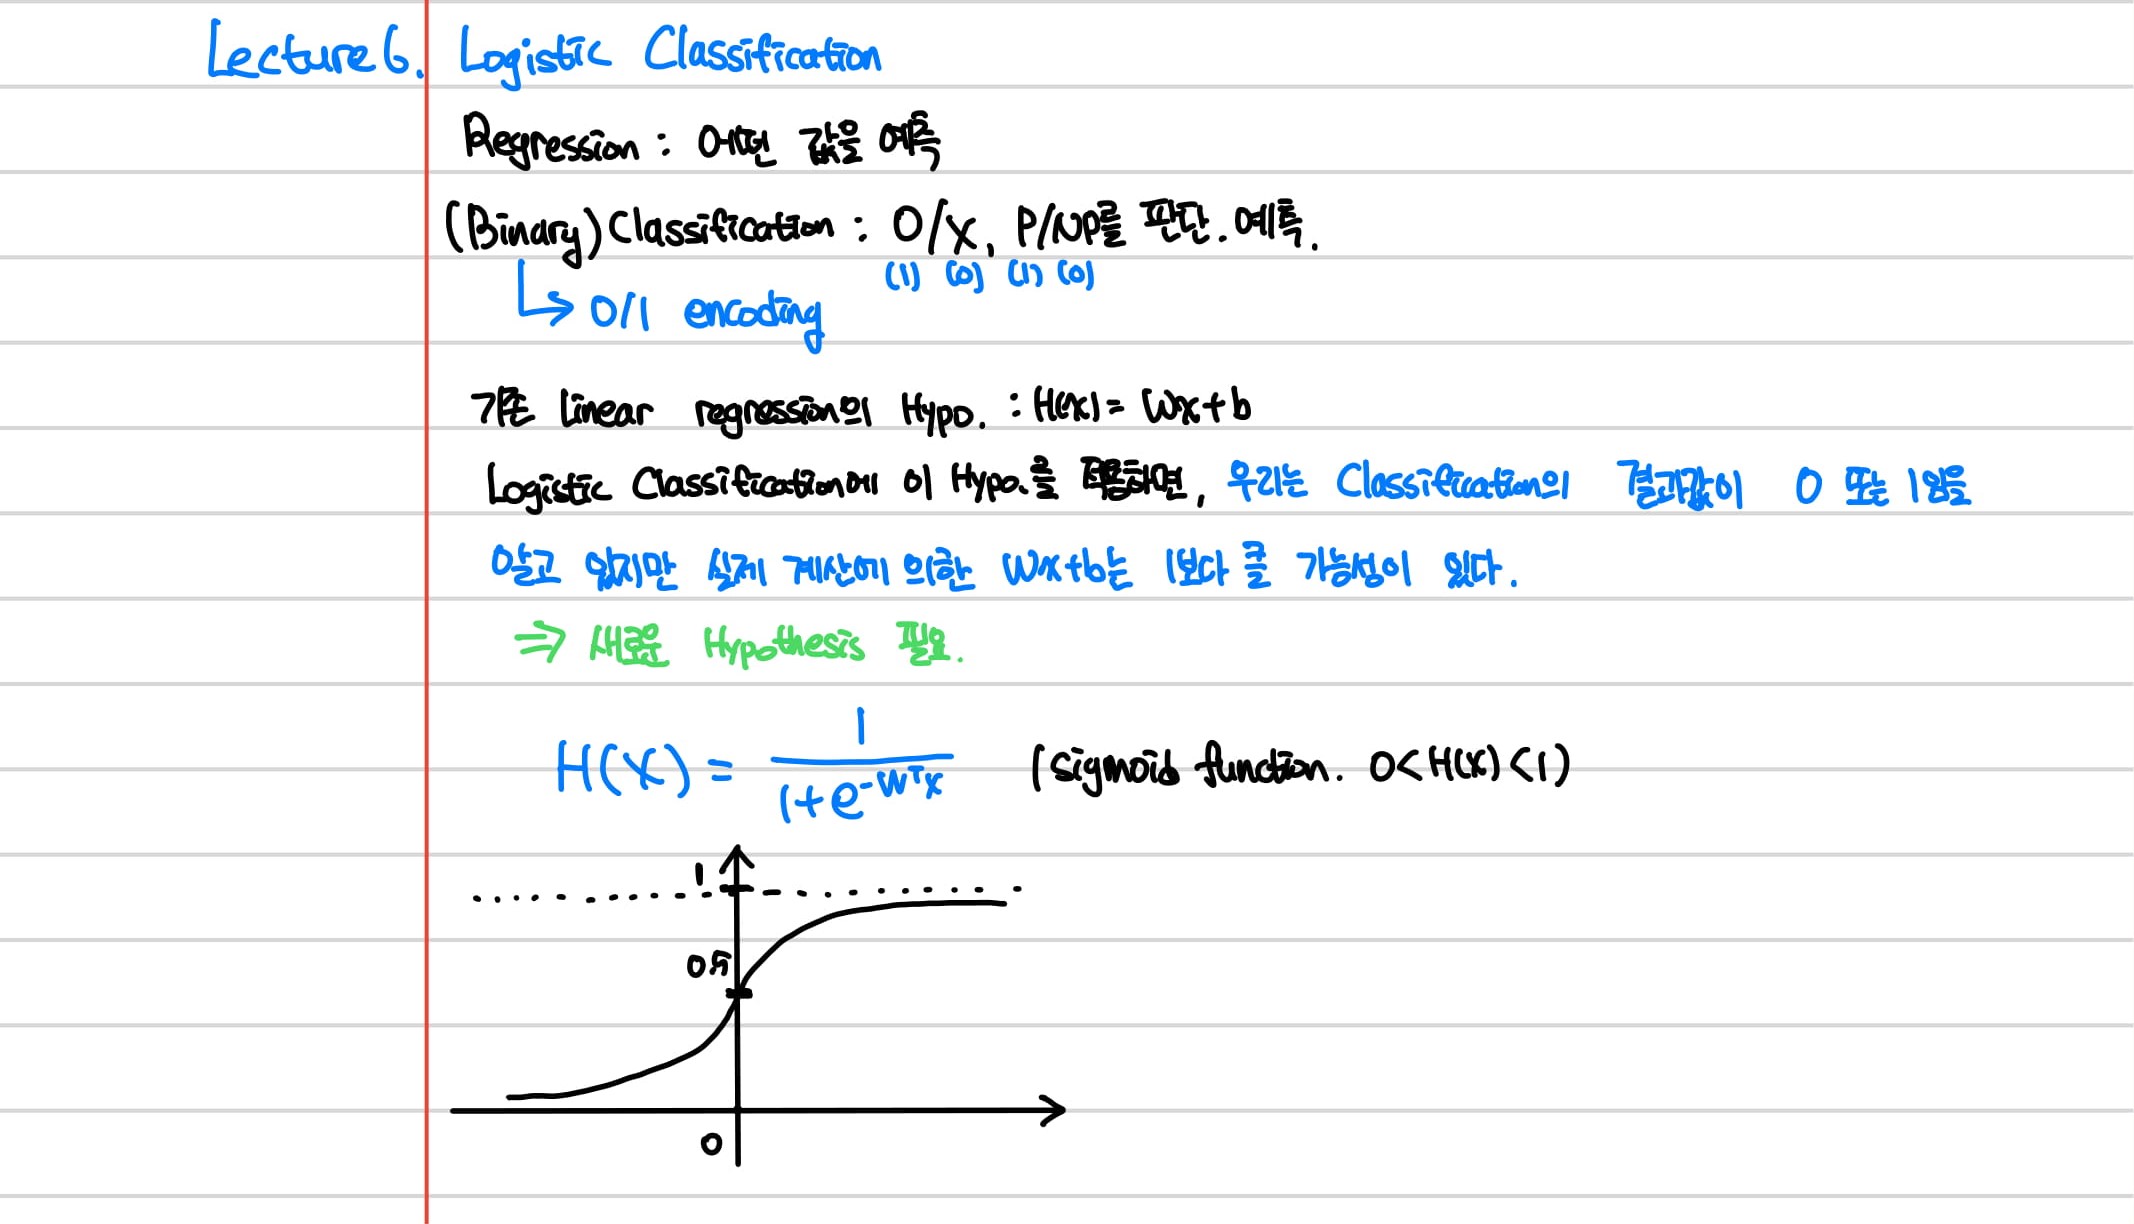 Lecture 6. Logistic Classification
Regression : 어떤 값을 예측
(Binary) Classification : O/X, P/NP를 판단. 예측.
(1) (0) (1) (0)
↳ 0/1 encoding
기존 Linear regression의 Hypo. : H(x) = Wx+b
Logistic Classification에 이 Hypo.를 적용하면, 우리는 Classification의 결과값이 0 또는 1임을
알고 있지만 실제 계산에 의한 Wx+b는 1보다 클 가능성이 있다.
⇒ 새로운 Hypothesis 필요.
H(X) = 1 / (1+e^{-WᵀX}) (sigmoid function. 0<H(x)<1)
1
0.5
0